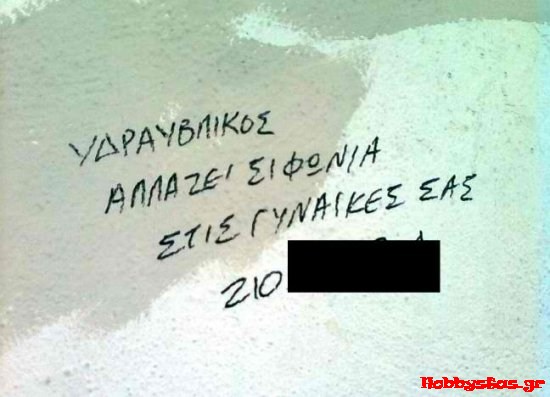 ΥΔΡΑΥΒΛΙΚΟΣ
ΑΛΛΑΖΕΙ ΣΙΦΩΝΙΑ
ΣΤΙΣ ΓΥΝΑΙΚΕΣ ΣΑΣ
210
Hobbystas.gr